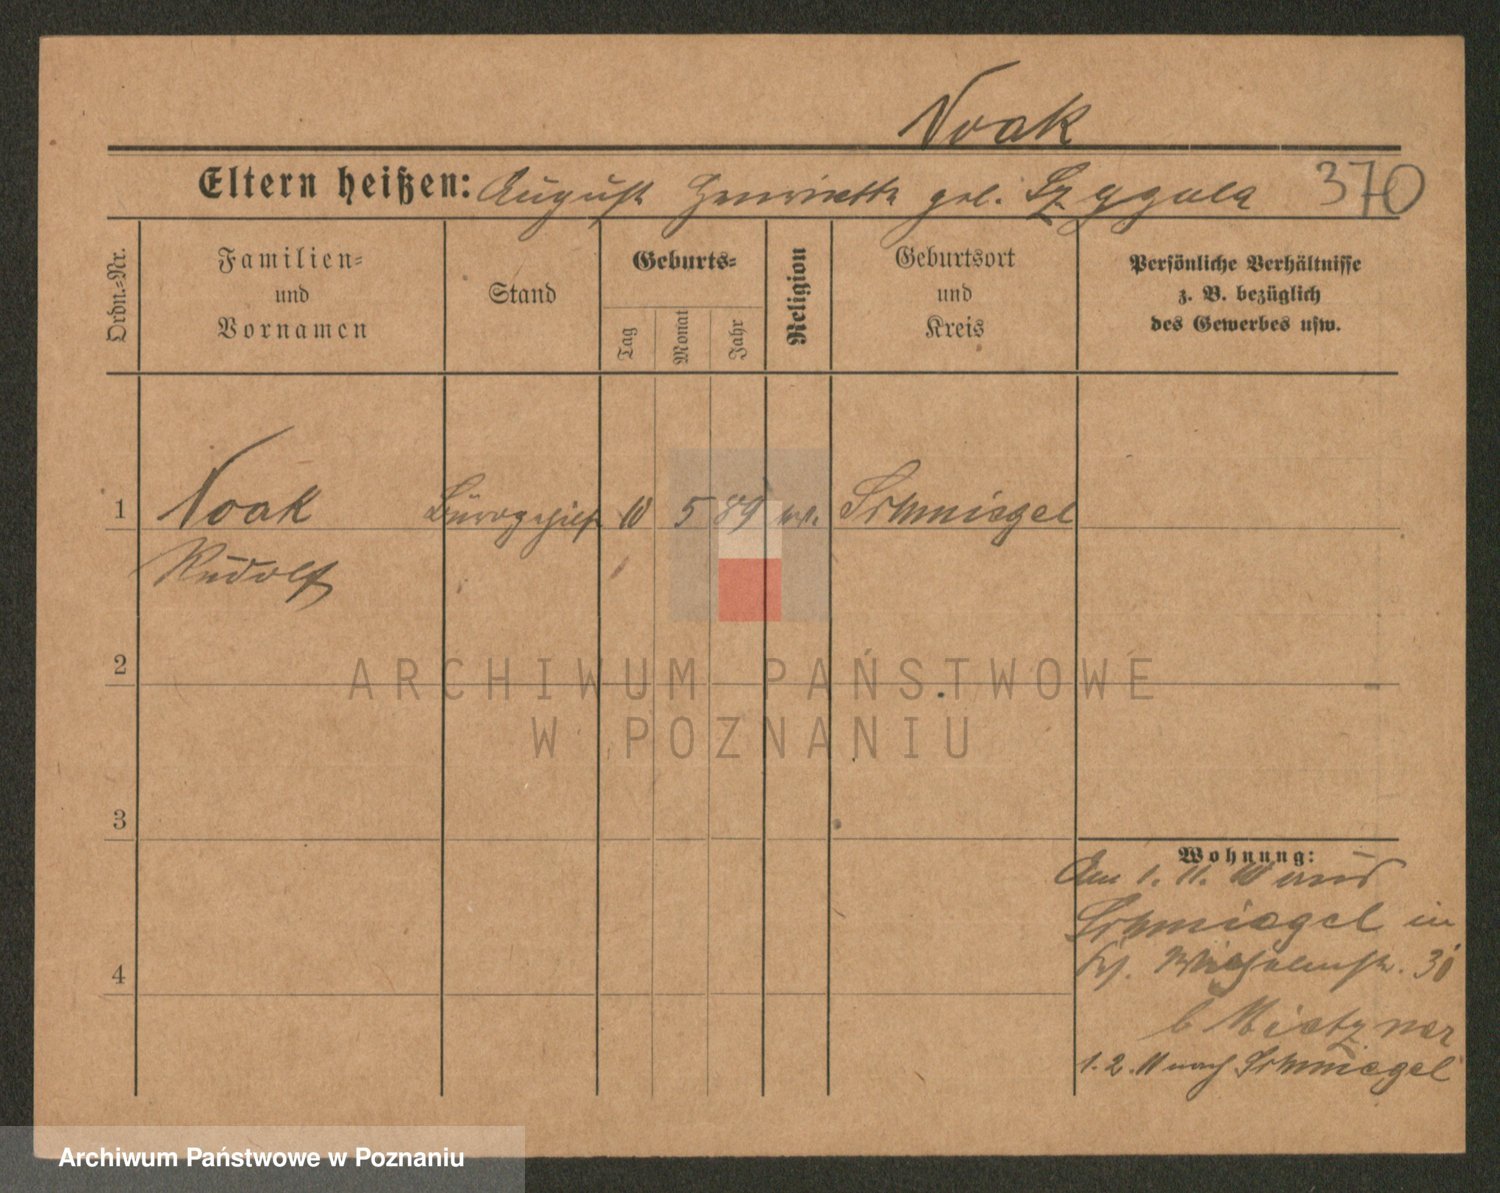 Noak
Eltern heißen: August Henriette geb. Szygula 370
Ordn.-Nr.
Familien-
und
Vornamen
Stand
Geburts-
Tag
Monat
Jahr
Religion
Geburtsort
und
Kreis
Persönliche Verhältnisse
z. B. bezüglich
des Gewerbes usw.
1 Noak Bürogehilfe 10 5 89 ev. Schmiegel
Rudolf
2
3
4
Wohnung:
Am 1. 11. 10 aus
Schmiegel in
Wilhelmstr. 30
b Mietzner
1. 2. 11 nach Schmiegel
ARCHIWUM PAŃSTWOWE
W POZNANIU
Archiwum Państwowe w Poznaniu